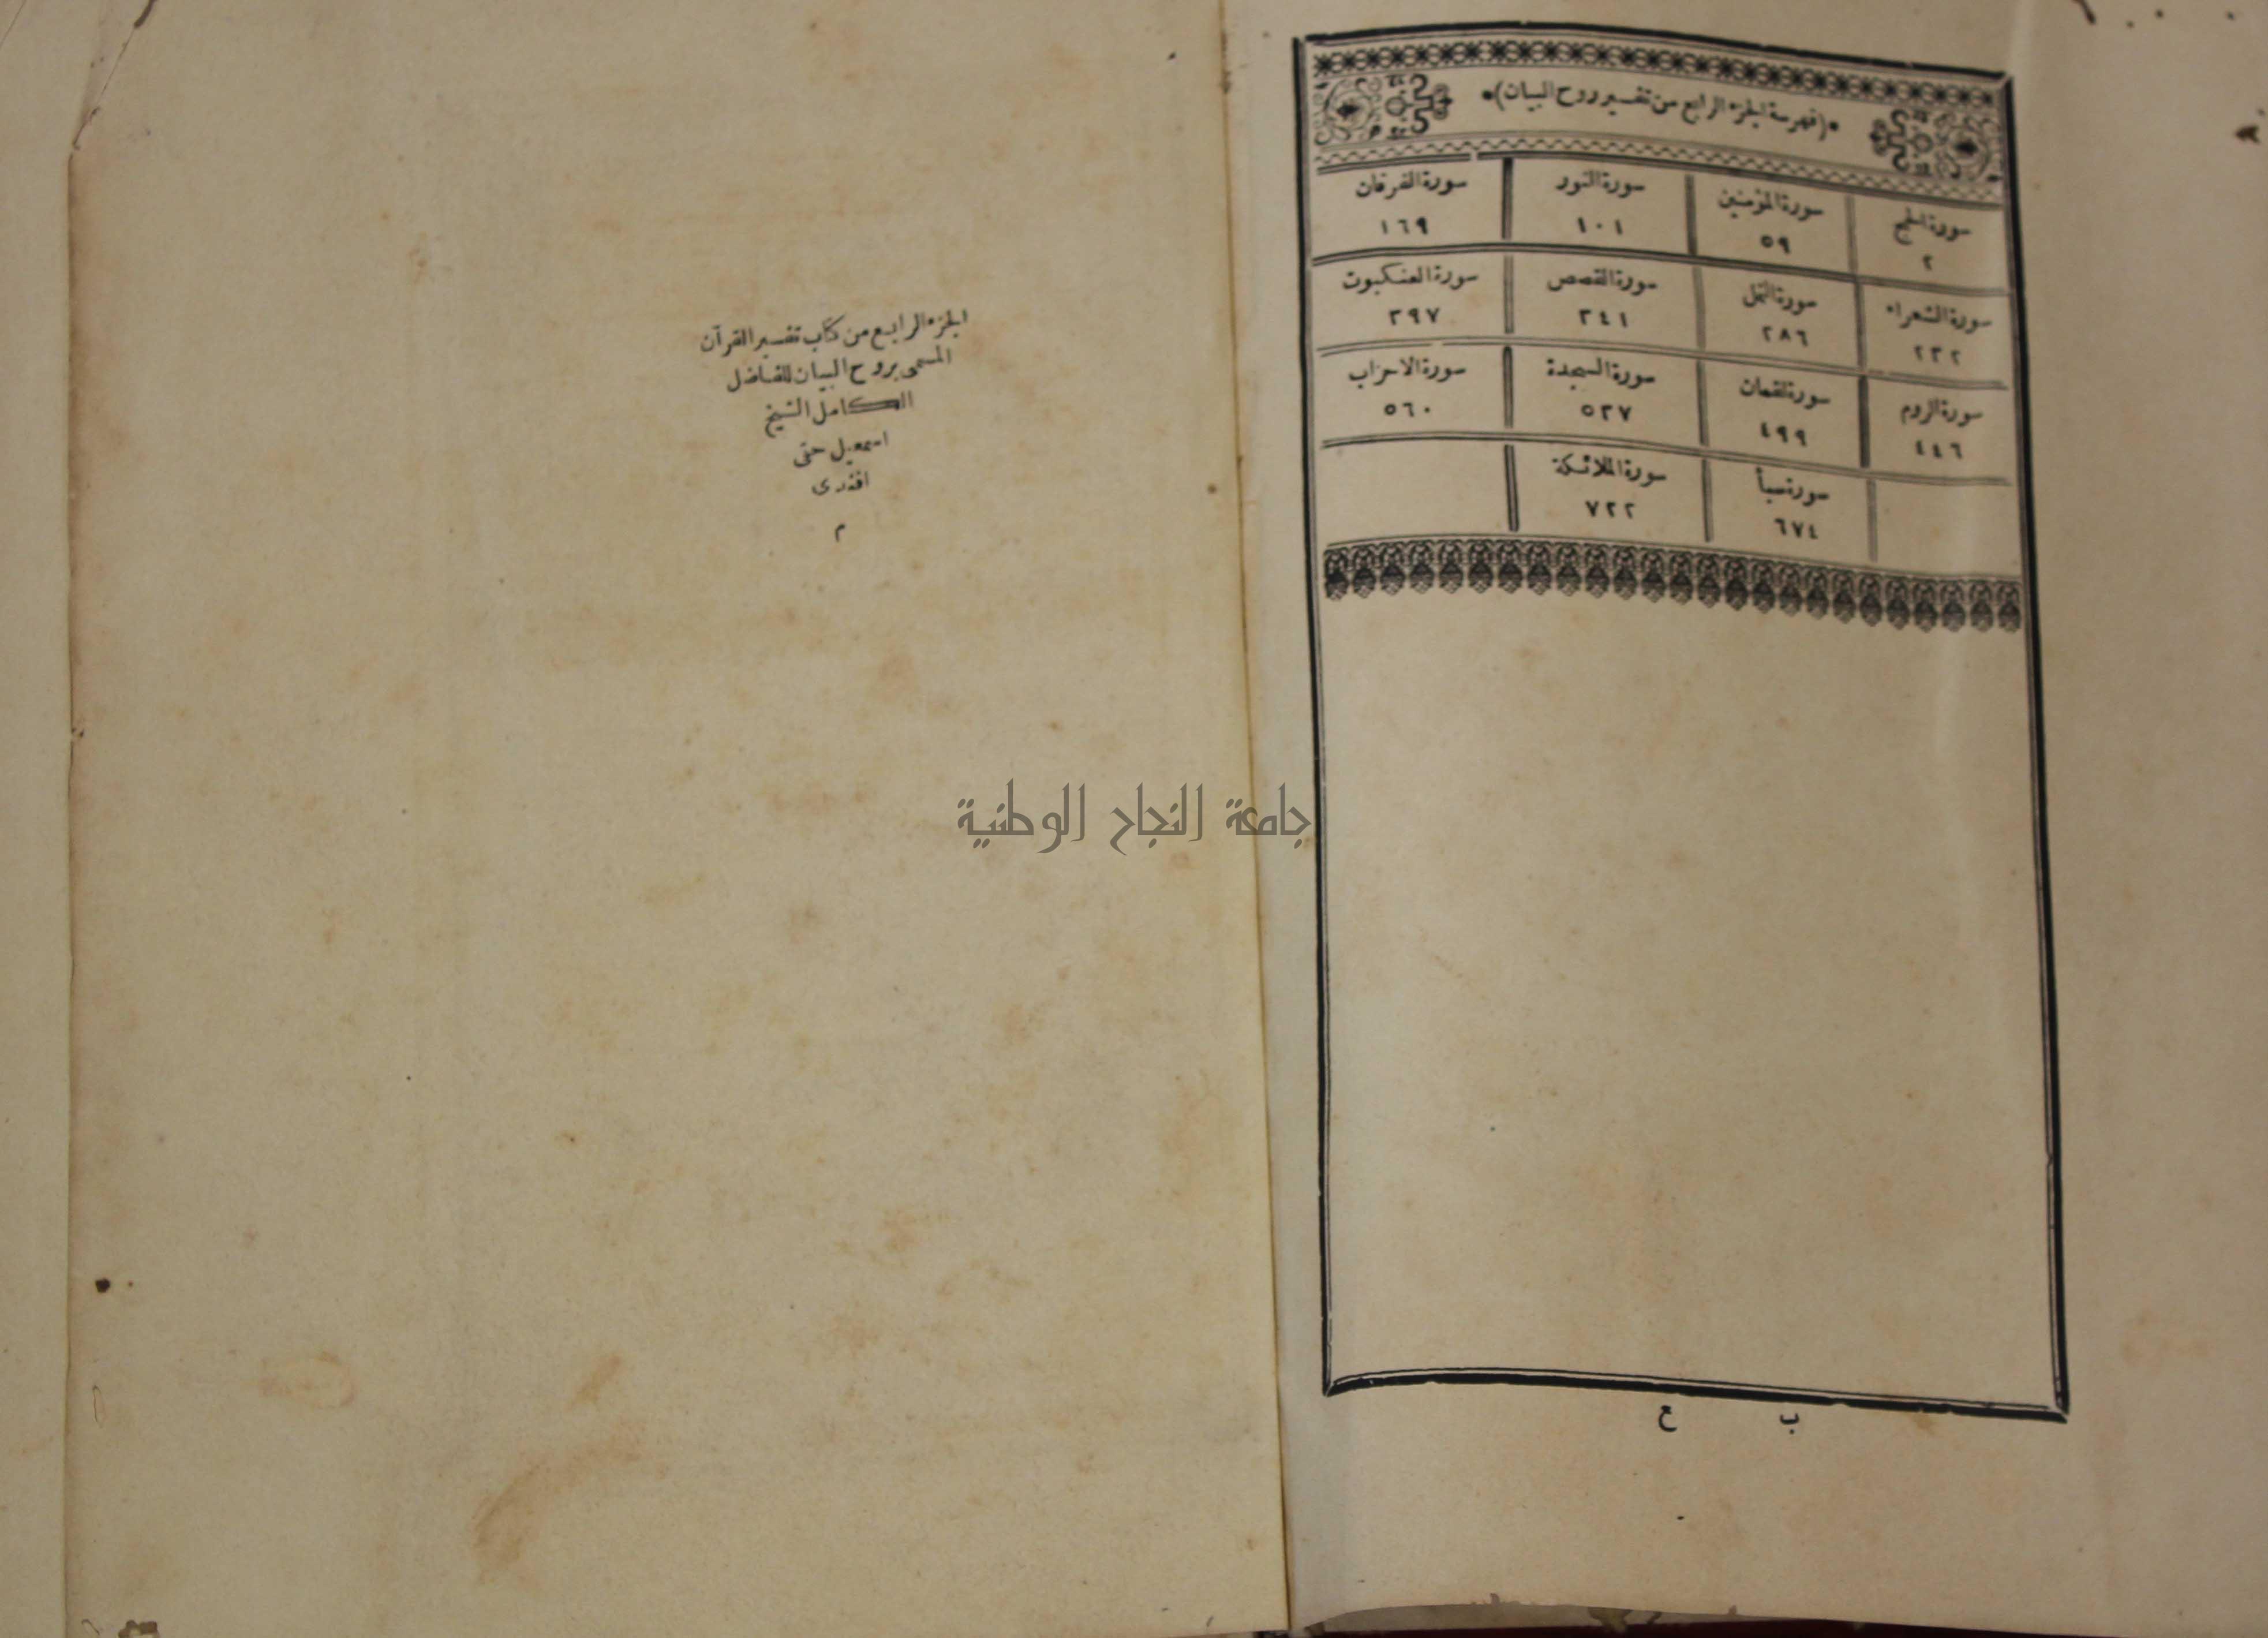 *(فهرسة الجزء الرابع من تفسير روح البيان)*
سورة الحج سورة المؤمنين سورة النور سورة الفرقان
٢ ٥٩ ١٠١ ١٦٩
سورة الشعراء سورة النمل سورة القصص سورة العنكبوت
٢٣٢ ٢٨٦ ٣٤١ ٣٩٧
سورة الروم سورة لقمان سورة السجدة سورة الاحزاب
٤٤٦ ٤٩٩ ٥٢٧ ٥٦٠
سورة سبأ سورة الملائكة
٦٧٤ ٧٢٢
ب ع
الجزء الرابع من كتاب تفسير القرآن
المسمى بروح البيان للفاضل
الكامل الشيخ
اسمعيل حقى
افندى
م
جامعة النجاح الوطنية